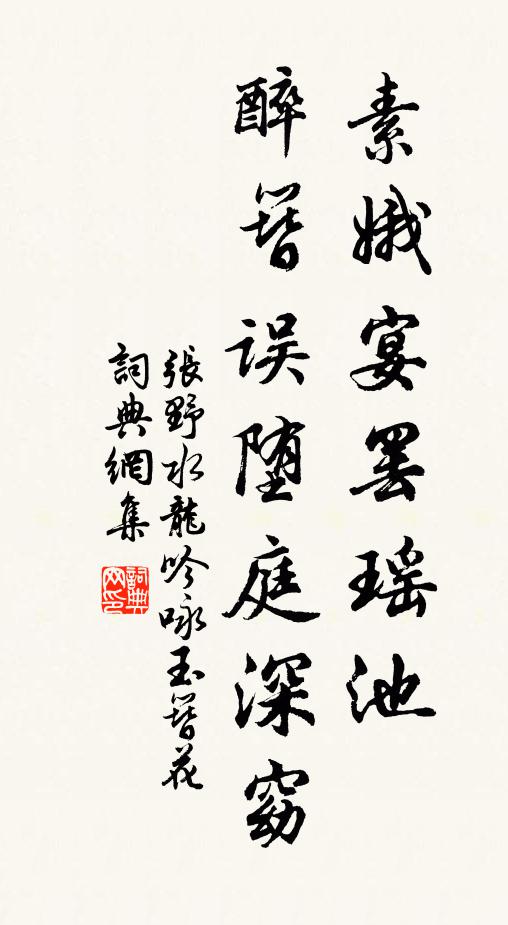 素娥宴罢瑶池
醉簪误堕庭深窈
張野水龍吟咏玉簪花
詞典網集
詞典网印